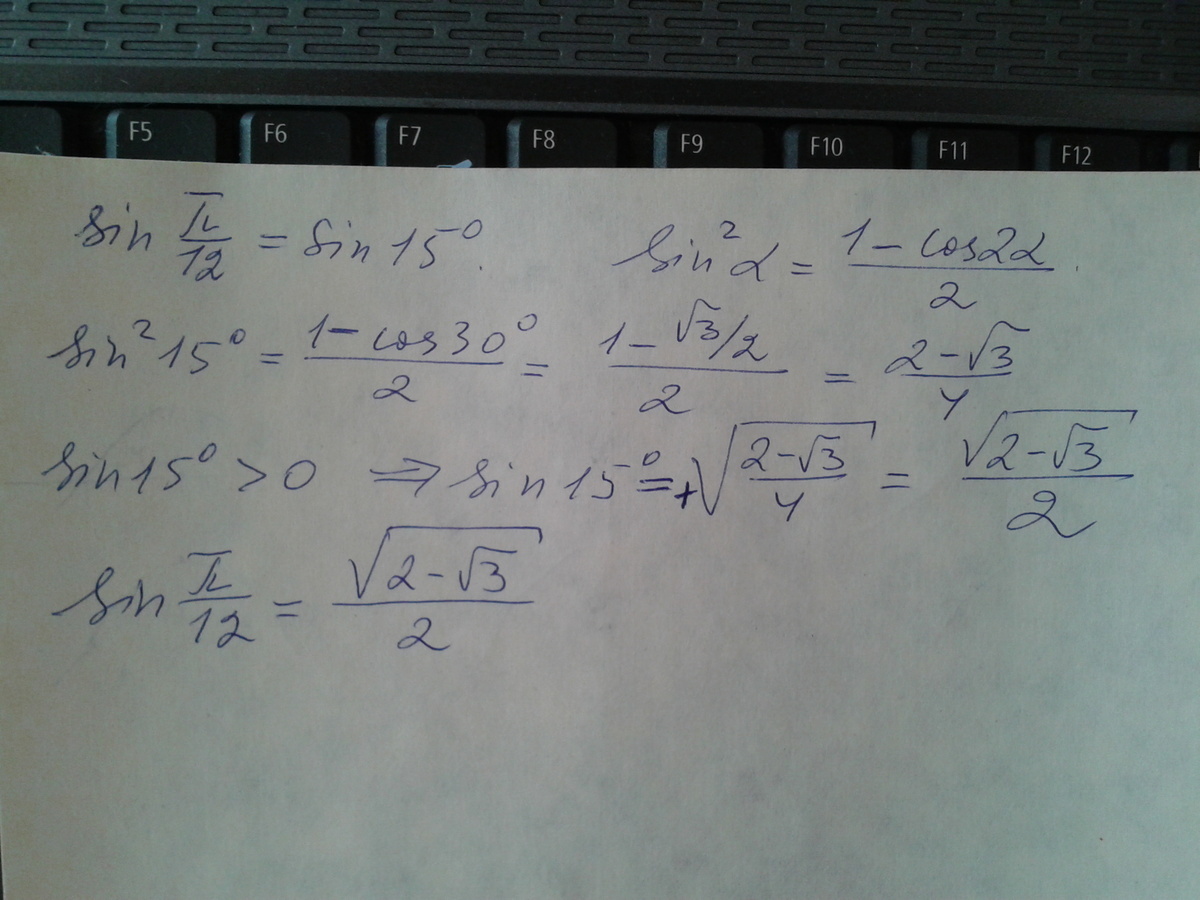 F5 F6 F7 F8 F9 F10 F11 F12
sin π/12 = sin 15°. sin²α = (1 - cos2α)/2.
sin²15° = (1 - cos30°)/2 = (1 - √3/2)/2 = (2 - √3)/4
sin15° > 0 ⇒ sin15° = +√((2 - √3)/4) = √(2 - √3)/2
sin π/12 = √(2 - √3)/2